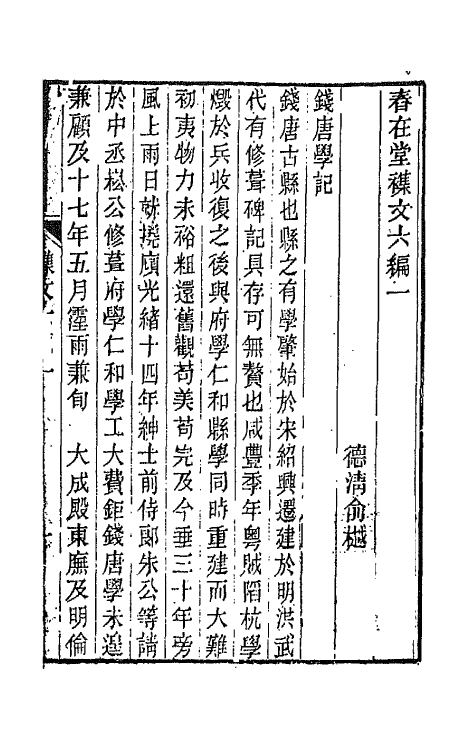 春在堂襍文六編一
德清俞樾
錢唐學記
錢唐古縣也縣之有學肇始於宋紹興遷建於明洪武
代有修葺碑記具存可無贅也咸豐季年粤賊陷杭學
燬於兵收復之後與府學仁和縣學同時重建而大難
初夷物力未裕粗還舊觀苟美苟完及今垂三十年旁
風上雨日就撓廎光緒十四年紳士前侍郎朱公等請
於中丞崧公修葺府學仁和學工大費鉅錢唐學未遑
兼顧及十七年五月霪雨兼旬 大成殿東廡及明倫
襍文